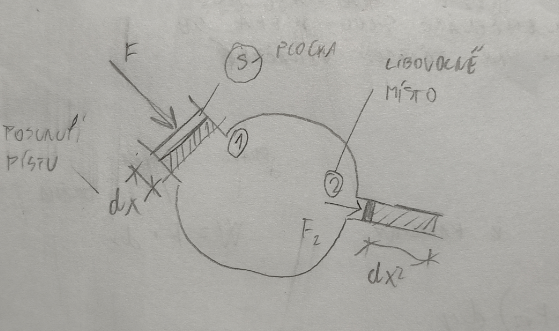 F
S
PLOCHA
LIBOVOLNĚ
MÍSTO
POSUNUTÍ
PÍSTU
dx
1
2
F₂
dx²